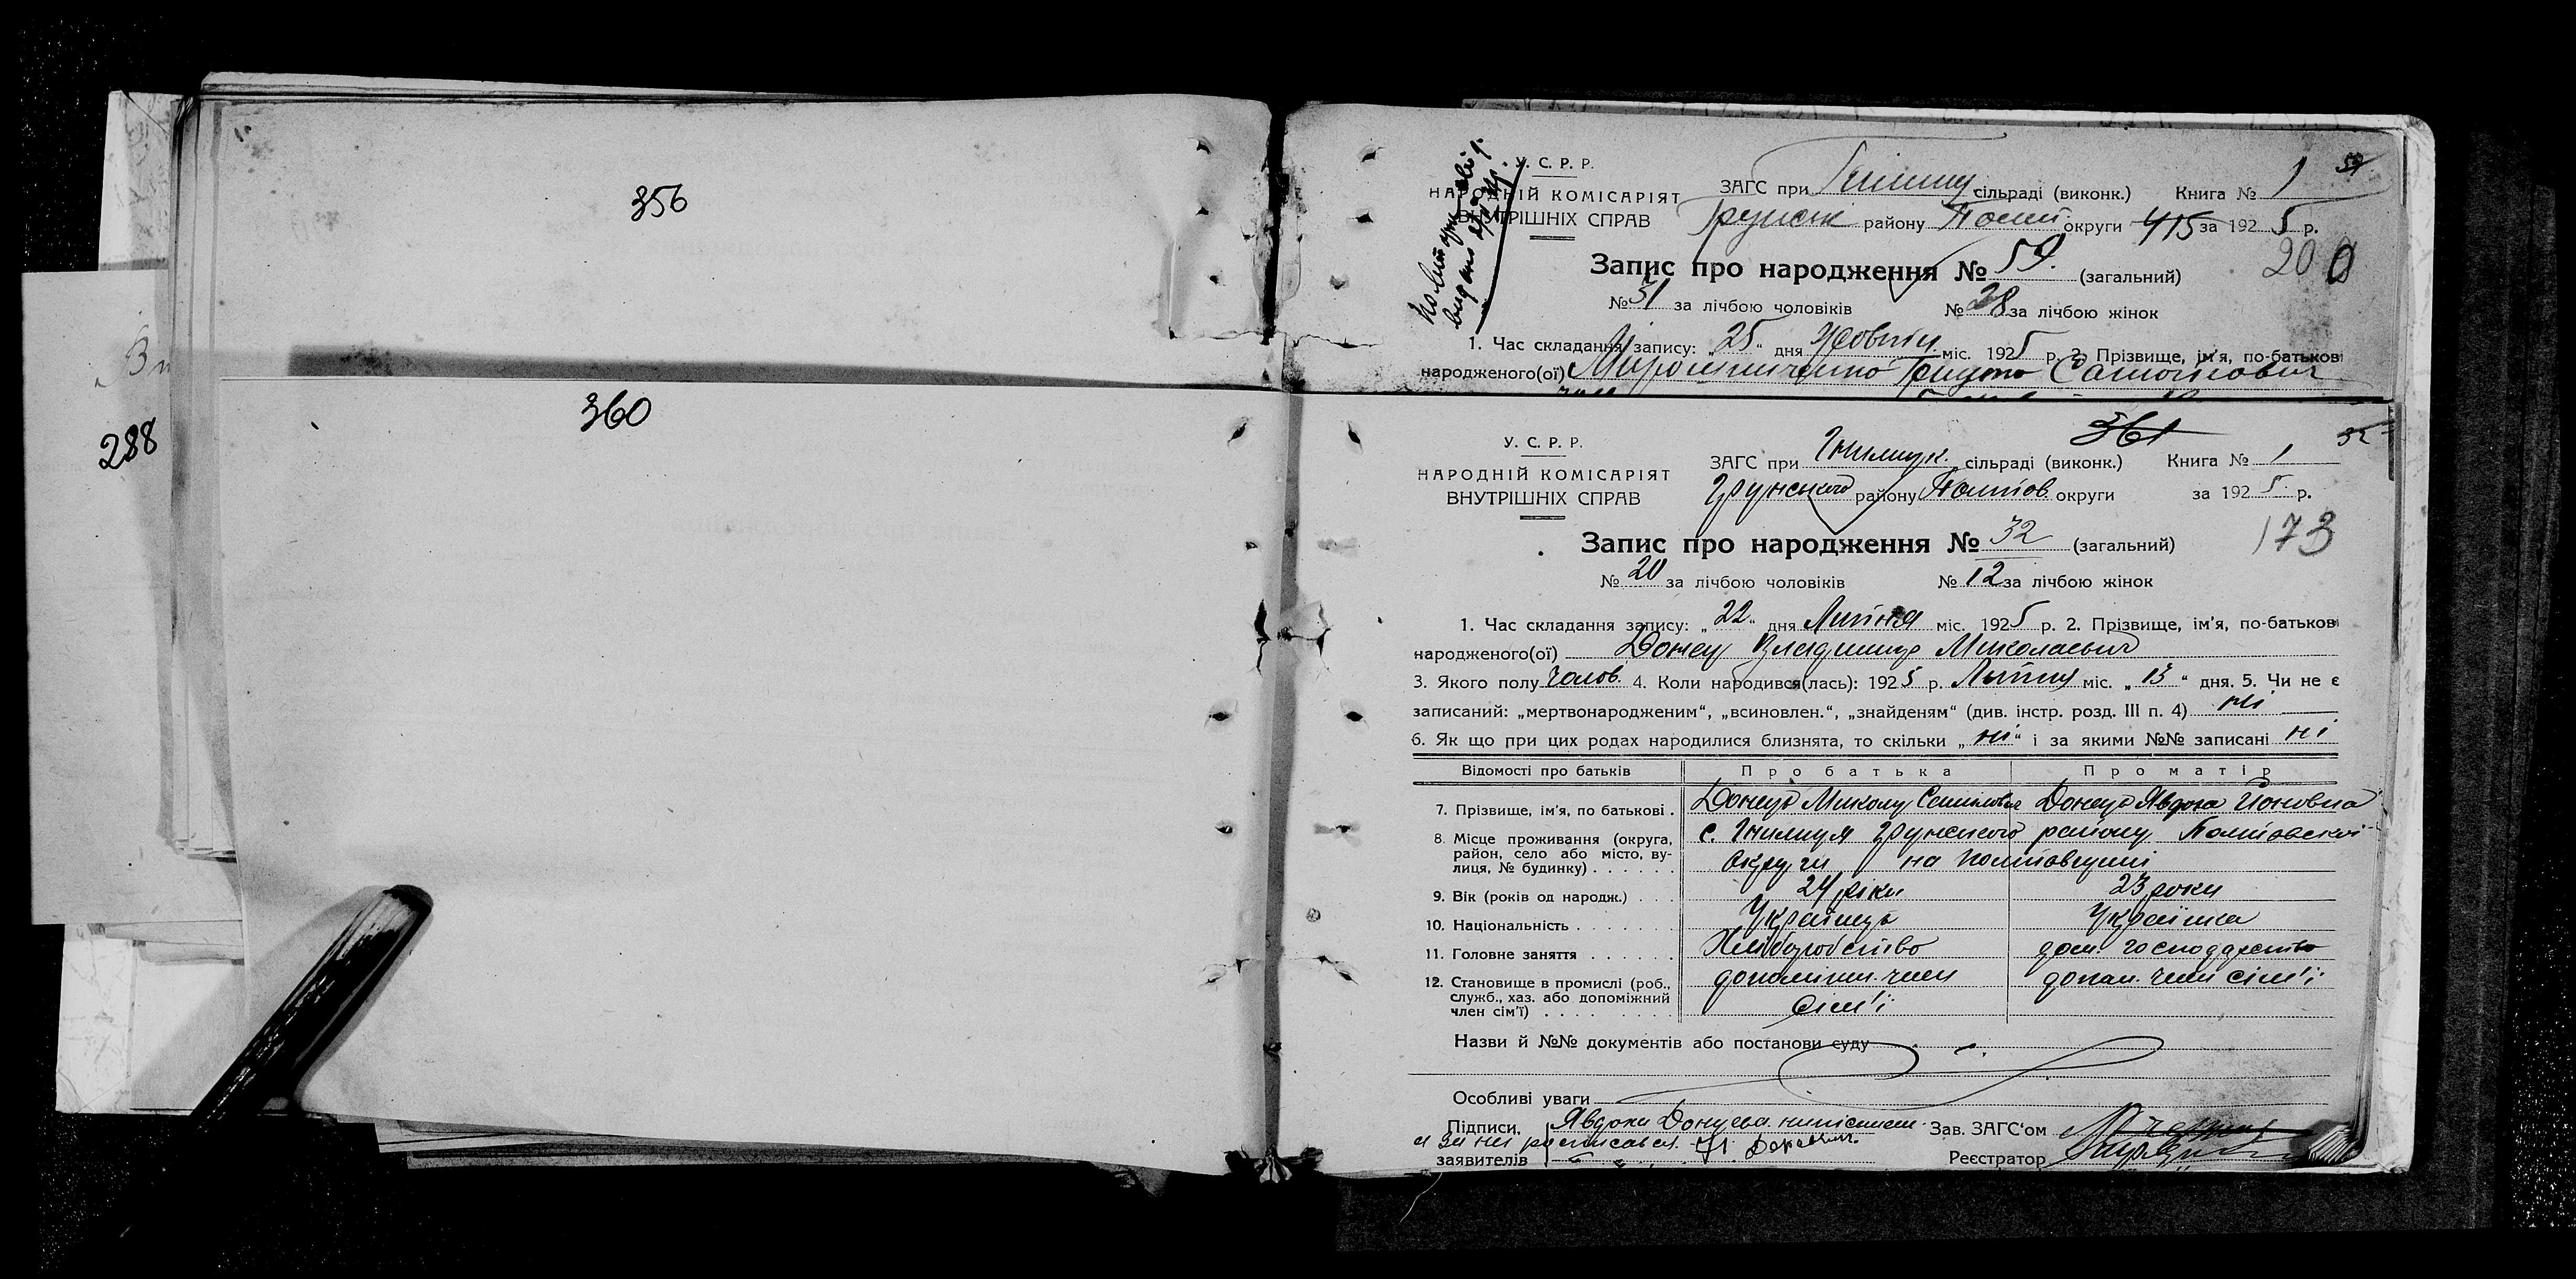 356
360
288
У. С. Р. Р.
НАРОДНІЙ КОМІСАРІЯТ
ВНУТРІШНІХ СПРАВ
ЗАГС при сільраді (виконк.) Книга № 1
району округи 415 за 1925 р.
Запис про народження № 59. (загальний)
200
№ 31 за лічбою чоловіків № 28 за лічбою жінок
1. Час складання запису: „25“ дня Жовтня міс. 1925 р. 2. Прізвище, ім'я, по-батькові
народженого(ої)
361
32
У. С. Р. Р.
НАРОДНІЙ КОМІСАРІЯТ
ВНУТРІШНІХ СПРАВ
ЗАГС при сільраді (виконк.) Книга № 1
Грунського району Полтов. округи за 1925 р.
Запис про народження № 32 (загальний)
173
№ 20 за лічбою чоловіків № 12 за лічбою жінок
1. Час складання запису: „22“ дня Липня міс. 1925 р. 2. Прізвище, ім'я, по-батькові
народженого(ої) Донец Владимир Миколаевич
3. Якого полу чолов. 4. Коли народився(лась): 1925 р. Липня міс. „13“ дня. 5. Чи не є
записаний: „мертвонародженим“, „всиновлен.“, „знайденям“ (див. інстр. розд. III п. 4) ні
6. Як що при цих родах народилися близнята, то скільки „ні“ і за якими №№ записані ні
Відомості про батьків Про батька Про матір
7. Прізвище, ім'я, по батькові . Донець Микола Донець Явдоха
8. Місце проживання (округа, с. Грунського району Полтовської
район, село або місто, ву-
лиця, № будинку) . . . . . . округи на Полтовщині
9. Вік (років од народж.) . . . 24 роки 23 роки
10. Національність . . . . . . . Українець Українка
11. Головне заняття . . . . . . Хліборобство дом. господарство
12. Становище в промислі (роб., допоміжн. член допом. член сім'ї
служб., хаз. або допоміжний
член сім'ї) . . . . . . . . сім'ї
Назви й №№ документів або постанови суду
Особливі уваги
Підписи, Явдоха Донцева неписьмен. Зав. ЗАГС'ом
а за неї расписався
заявителів Реєстратор